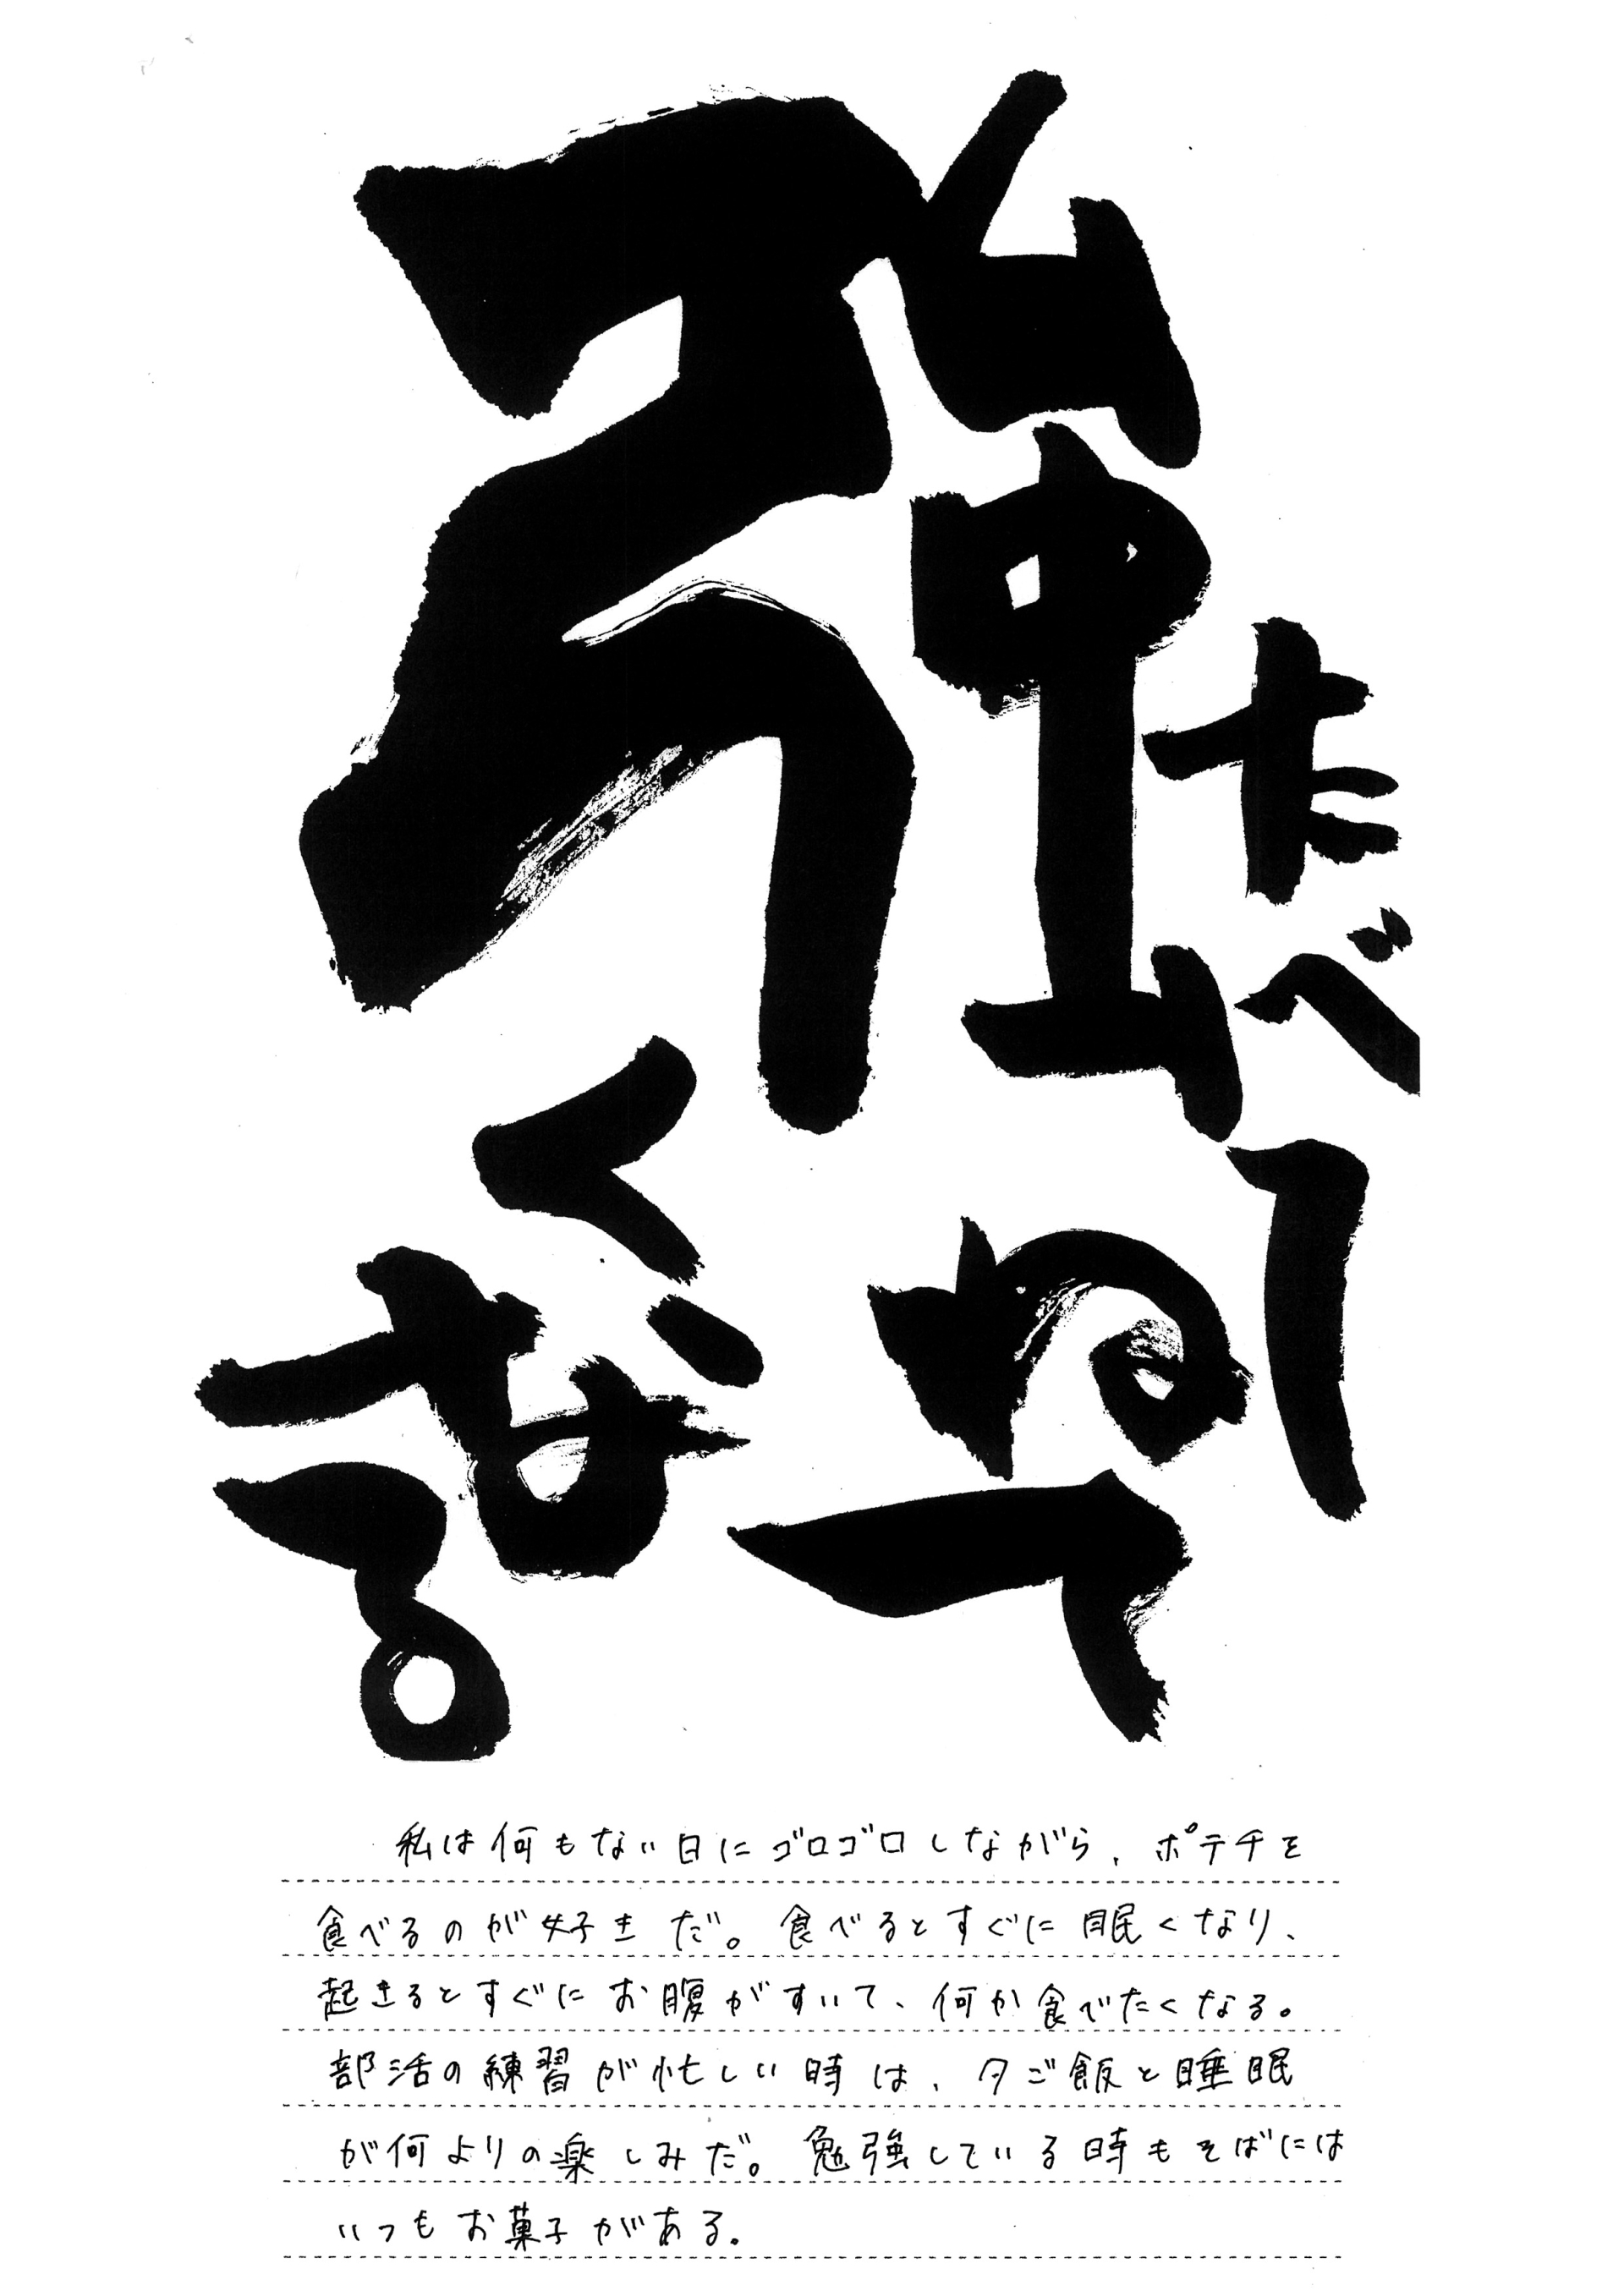 たべて
ねて
強くなる
私は何もない日にゴロゴロしながら、ポテチを
食べるのが好きだ。食べるとすぐに眠くなり、
起きるとすぐにお腹がすいて、何か食べたくなる。
部活の練習が忙しい時は、夕ご飯と睡眠
が何よりの楽しみだ。勉強している時もそばには
いつもお菓子がある。